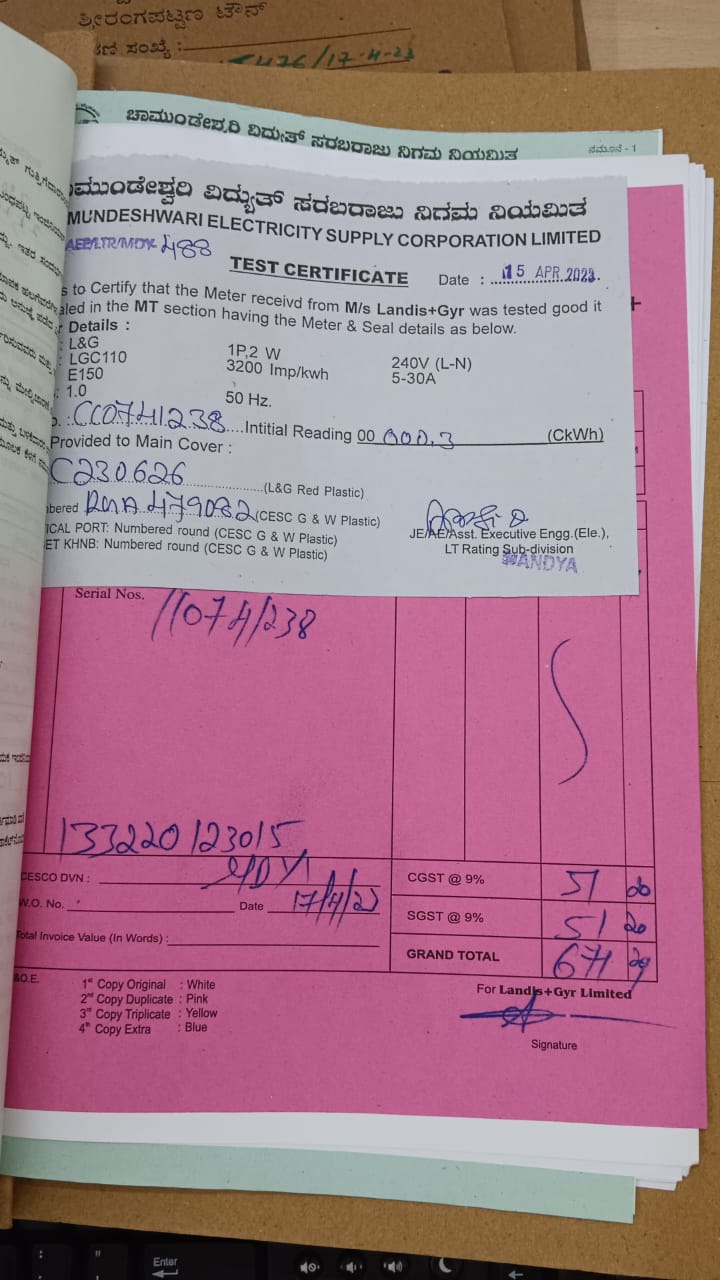 ಶ್ರೀರಂಗಪಟ್ಟಣ ಟೌನ್
ಸಂಖ್ಯೆ :
5476/17-4-23
ಚಾಮುಂಡೇಶ್ವರಿ ವಿದ್ಯುತ್ ಸರಬರಾಜು ನಿಗಮ ನಿಯಮಿತ
ನಮೂನೆ - 1
ಮುಂಡೇಶ್ವರಿ ವಿದ್ಯುತ್ ಸರಬರಾಜು ನಿಗಮ ನಿಯಮಿತ
MUNDESHWARI ELECTRICITY SUPPLY CORPORATION LIMITED
AEE/LTR/MDY 488
TEST CERTIFICATE
Date : 15 APR 2023
s to Certify that the Meter receivd from M/s Landis+Gyr was tested good it
aled in the MT section having the Meter & Seal details as below.
r Details :
: L&G 1P,2 W 240V (L-N)
: LGC110 3200 Imp/kwh 5-30A
E150
: 1.0 50 Hz.
o. : CC0741238 Intitial Reading 00 000.3 (CkWh)
Provided to Main Cover :
C230626 (L&G Red Plastic)
nbered 479082 (CESC G & W Plastic)
ICAL PORT: Numbered round (CESC G & W Plastic)
ET KHNB: Numbered round (CESC G & W Plastic)
JE/AE/Asst. Executive Engg.(Ele.),
LT Rating Sub-division
MANDYA
Serial Nos. 11074/238
133220123015
CESCO DVN : MDY
W.O. No. Date 17/4/23
Total Invoice Value (In Words) :
CGST @ 9% 51 20
SGST @ 9% 51 20
GRAND TOTAL 671
&O.E.
1st Copy Original : White
2nd Copy Duplicate : Pink
3rd Copy Triplicate : Yellow
4th Copy Extra : Blue
For Landis+Gyr Limited
Signature
Enter